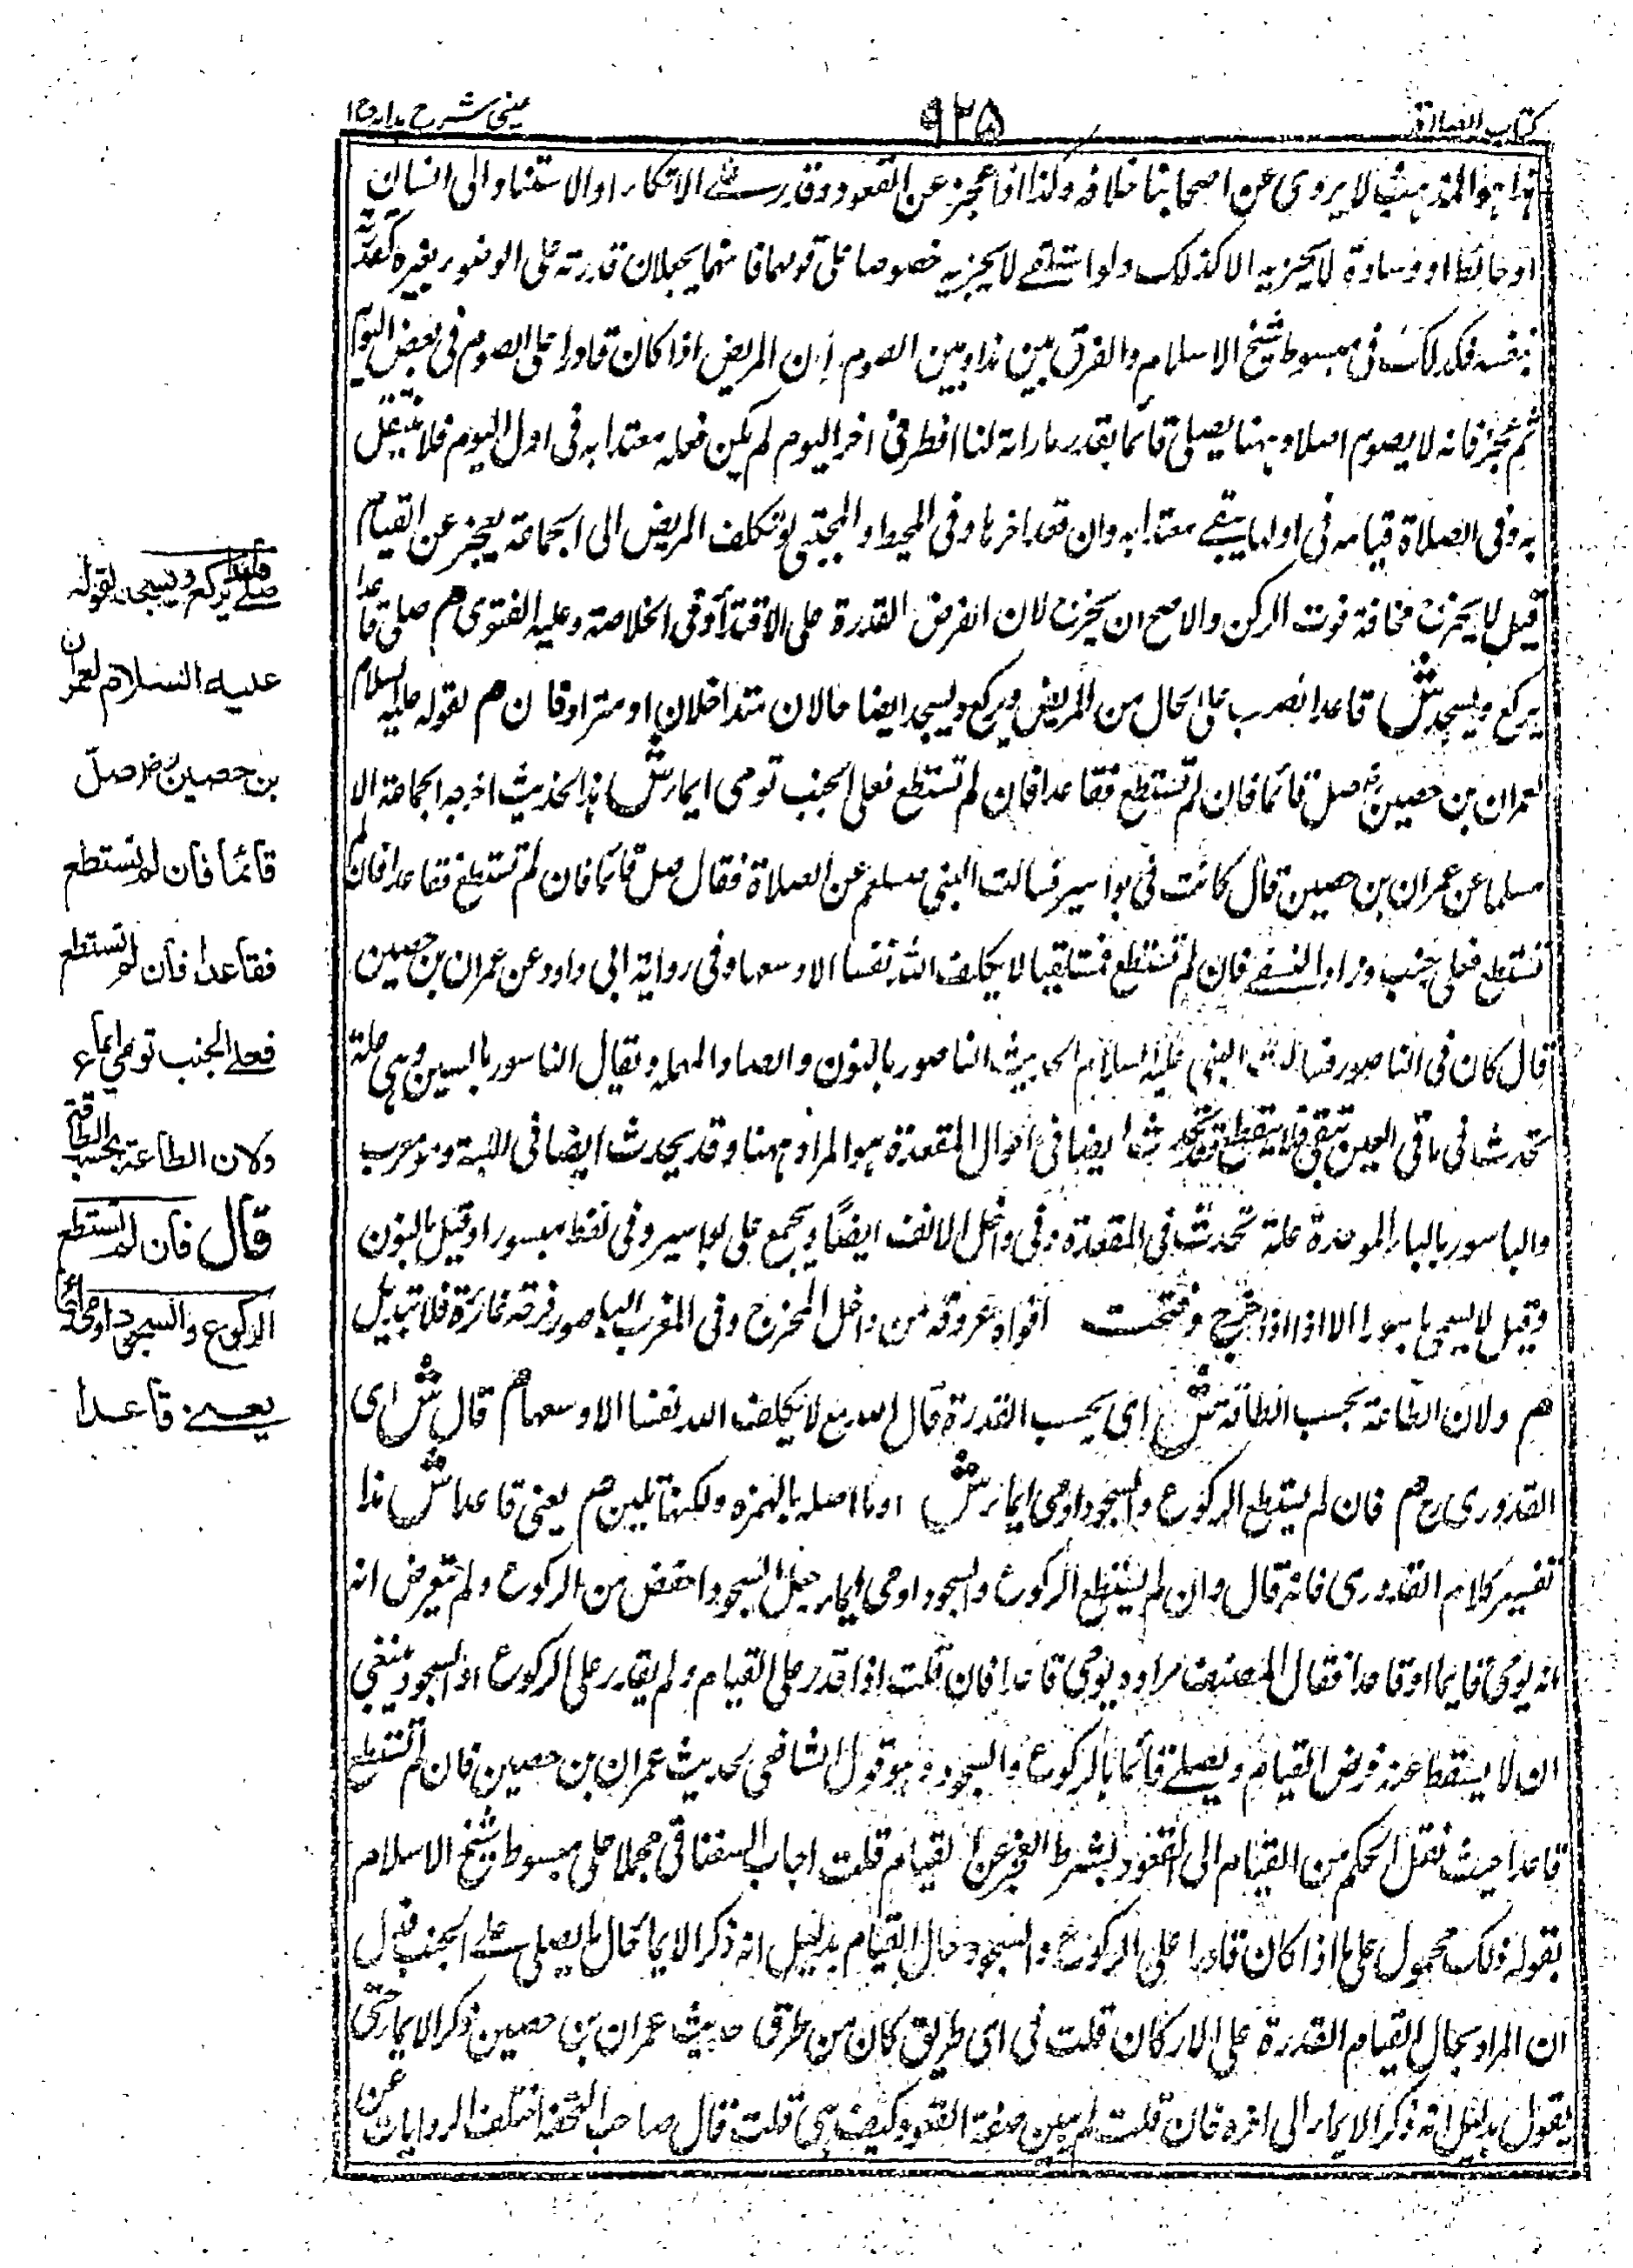 كتاب الصلاة
٩٢٥
عینی شرح هدایه ج ١
هذا هو المذهب لا يروى عن اصحابنا خلافه وكذا اذا عجز عن القعود وقدر على الاتكاء او الاستناد الى انسان
او حائط او وسادة لا يجزيه الا كذلك ولو استلقى لا يجزيه خصوصا على قولهما فانهما يجعلان قدرته على الوضوء بغيره كقدرته
بنفسه فكذلك فى مبسوط شيخ الاسلام والفرق بين هذا وبين الصوم ان المريض اذا كان قادرا على الصوم فى بعض اليوم
ثم عجز فانه لا يصوم اصلا وههنا يصلى قائما بقدر ما لنا افطر فى اخر اليوم لم يكن فعله معتدا به فى اول اليوم فلا يشتغل
به وفى الصلاة قيامه فى اولها يبقى معتدا به وان قعد اخرها وفى المحيط والمجتبى لو تكلف المريض الى الجماعة يعجز عن القيام
قيل لا يخرج مخافة فوت الركن والاصح ان يخرج لان الفرض القدرة على الاقتدا وفى الخلاصة وعليه الفتوى هم صلى قاعدا
يركع ويسجد ش قاعدا نصب على الحال من المريض ويركع ويسجد ايضا حالان متداخلان او مترادفان هم لقوله عليه السلام
لعمران بن حصين رض صل قائما فان لم تستطع فقاعدا فان لم تستطع فعلى الجنب تومى ايماء ش هذا الحديث اخرجه الجماعة الا
مسلما عن عمران بن حصين قال كانت فى بواسير فسالت النبى صلعم عن الصلاة فقال صل قائما فان لم تستطع فقاعدا فان لم
تستطع فعلى جنب وزاد النسفى فان لم تستطع فمستلقيا لا يكلف الله نفسا الا وسعها وفى رواية ابى داود عن عمران بن حصين
قال كان فى الناصور فسالت النبى عليه السلام الحديث الناصور بالنون والصاد المهملة ويقال الناسور بالسين وهى علة
تحدث فى ماقى العين تسقى فلا ينقطع وقد تحدث ايضا فى احوال المقعدة هو المراد ههنا وقد يحدث ايضا فى اللثة وهو معرب
والباسور بالباء الموحدة علة تحدث فى المقعدة وفى داخل الانف ايضا ويجمع على بواسير وفى لفظ مبسورا وقيل بالنون
وقيل لا يسمى باسورا الا اذا خرج وفتحت افواه عروقه من داخل المخرج وفى المغرب الباصور قرحة غائرة فلا تبديل
هم ولان الطاعة بحسب الطاقة ش اى بحسب القدرة قال الله تع لا يكلف الله نفسا الا وسعها هم قال ش اى
القدورى رح هم فان لم يستطع الركوع والسجود اومى ايماء ش اوما اصله بالهمزه ولكنها تلين هم يعنى قاعدا ش هذا
تفسير كلام القدورى فانه قال وان لم يستطع الركوع والسجود اومى ايماء جعل السجود اخفض من الركوع ولم يتعرض انه
انه يومى قايما او قاعدا فقال المصنف مراده يومى قاعدا فان قلت اذا قدر على القيام ولم يقدر على الركوع او السجود ينبغى
ان لا يسقط عنه فرض القيام ويصلى قائما بالركوع والسجود وهو قول الشافعى لحديث عمران بن حصين فان لم تستطع
قاعدا حيث نقل الحكم من القيام الى القعود بشرط العجز عن القيام قلت اجاب السغناقى مجملا على مبسوط شيخ الاسلام
بقوله ذلك محمول على ما اذا كان قادرا على الركوع والسجود حال القيام بدليل انه ذكر الايماء حال ما يصلى على الجنب فدل
ان المراد بحال القيام القدرة على الاركان قلت فى اى طريق كان من طرق حديث عمران بن حصين ذكر الايماء حتى
يقول بدليل انه ذكر الايماء الى اخره فان قلت لم يبين صفة القعود كيف هى قلت قال صاحب التحفة اختلف الروايات عن
صلى قاعدا يركع ويسجد لقوله
عليه السلام لعمران
بن حصين رض صل
قائما فان لم تستطع
فقاعدا فان لم تستطع
فعلى الجنب تومى ايماء
ولان الطاعة بحسب الطاقة
قال فان لم تستطع
الركوع والسجود اومى ايماء
يعنى قاعدا